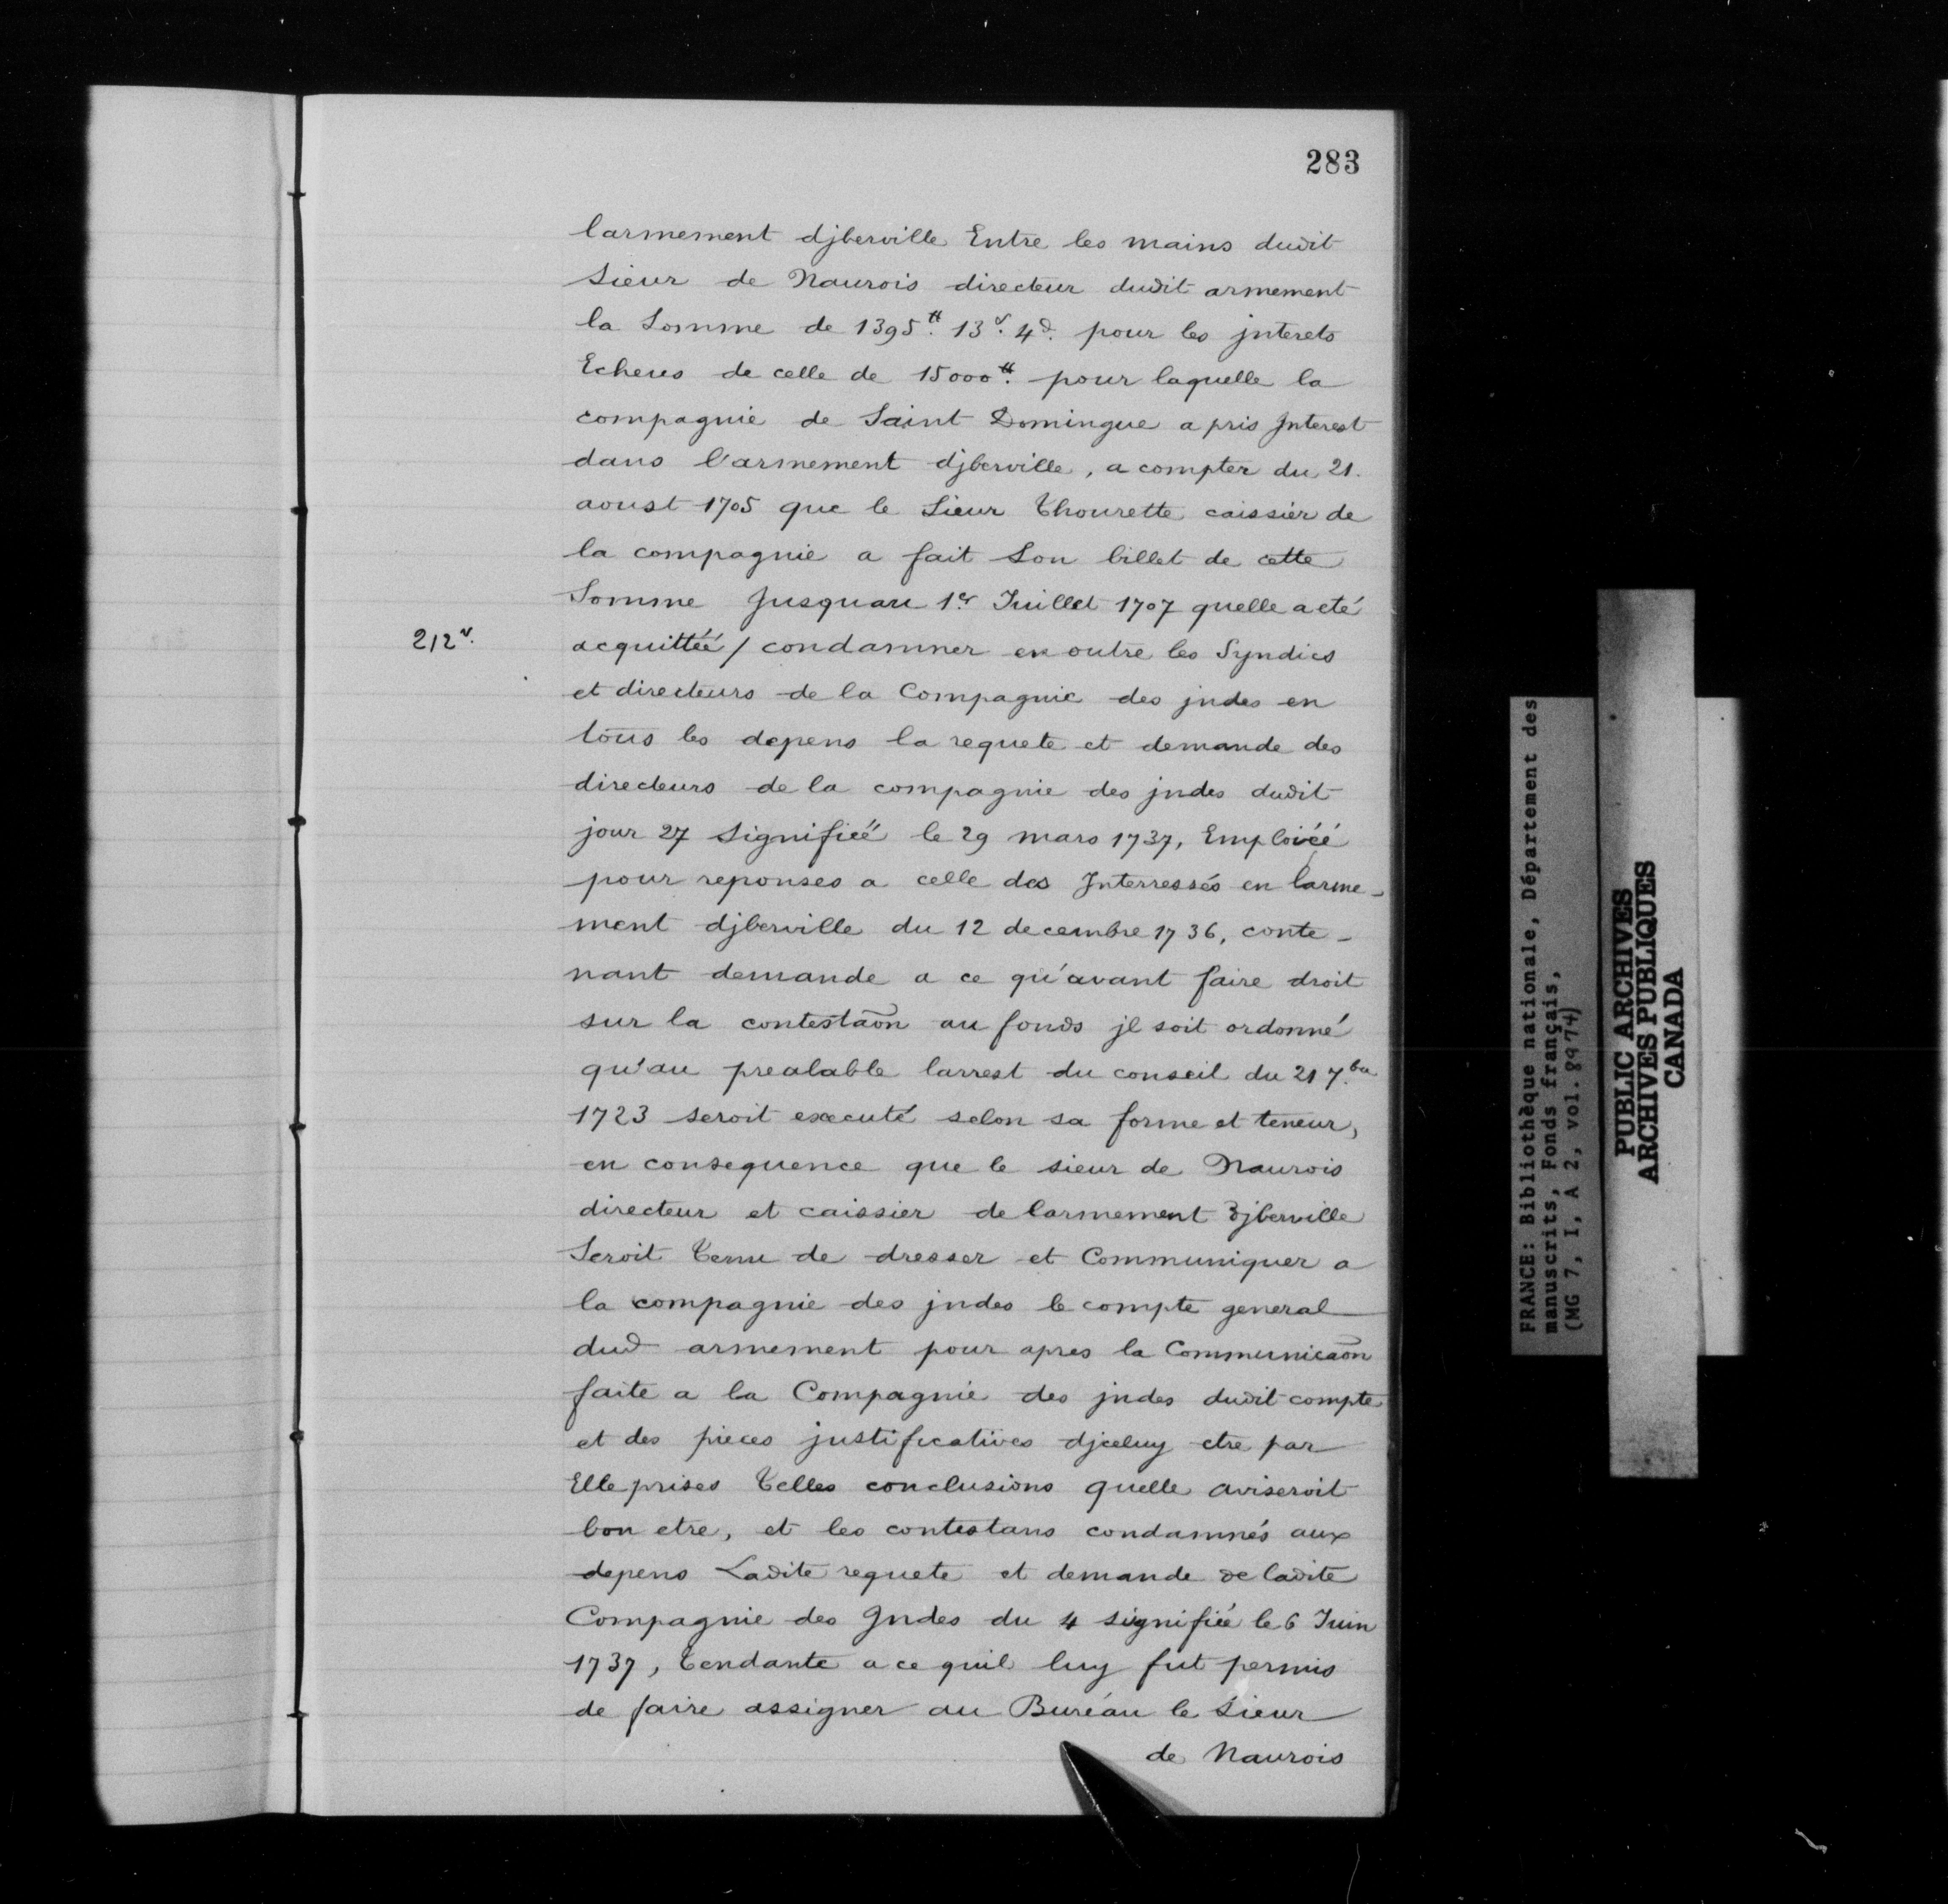 283
larmement djberville Entre les mains dudit
Sieur de Naurois directeur dudit armement
la Somme de 1395.tt 13.s 4.d pour les jnterets
Echeus de celle de 15000.tt pour laquelle la
compagnie de Saint Domingue a pris Jnterest
dans l'armement djberville, a compter du 21.
aoust 1705 que le Sieur Thourette caissier de
la compagnie a fait Son billet de cette
Somme Jusquau 1er Juillet 1707 quelle a eté
212v.
acquittéé / condamner en outre les Syndics
et directeurs de la Compagnie des jndes en
tous les depens la requete et demande des
directeurs de la compagnie des jndes dudit
jour 27 Signifiéé le 29 mars 1737, Emploiéé
pour reponses a celle des Jnterressés en larme-
ment djberville du 12 decembre 1736, conte-
nant demande a ce qu'avant faire droit
sur la contestaõn au fonds jl soit ordonné
qu'au prealable larrest du conseil du 21 7.bre
1723 seroit executé selon sa forme et teneur,
en consequence que le sieur de Naurois
directeur et caissier de larmement djberville
Seroit Tenu de dresser et Communiquer a
la compagnie des jndes le compte general
dud armement pour apres la Communicaõn
faite a la Compagnie des jndes dudit compte
et des pieces justificatives djceluy etre par
Elle prises Telles conclusions quelle aviseroit
bon etre, et les contestans condamnés aux
depens Ladite requete et demande de ladite
Compagnie des Jndes du 4 signifiée le 6 Juin
1737, Tendante a ce quil luy fut permis
de faire assigner au Buréau le Sieur
de Naurois
FRANCE: Bibliothèque nationale, Département des
manuscrits, Fonds français,
(MG 7, I, A 2, vol. 8974)
PUBLIC ARCHIVES
ARCHIVES PUBLIQUES
CANADA